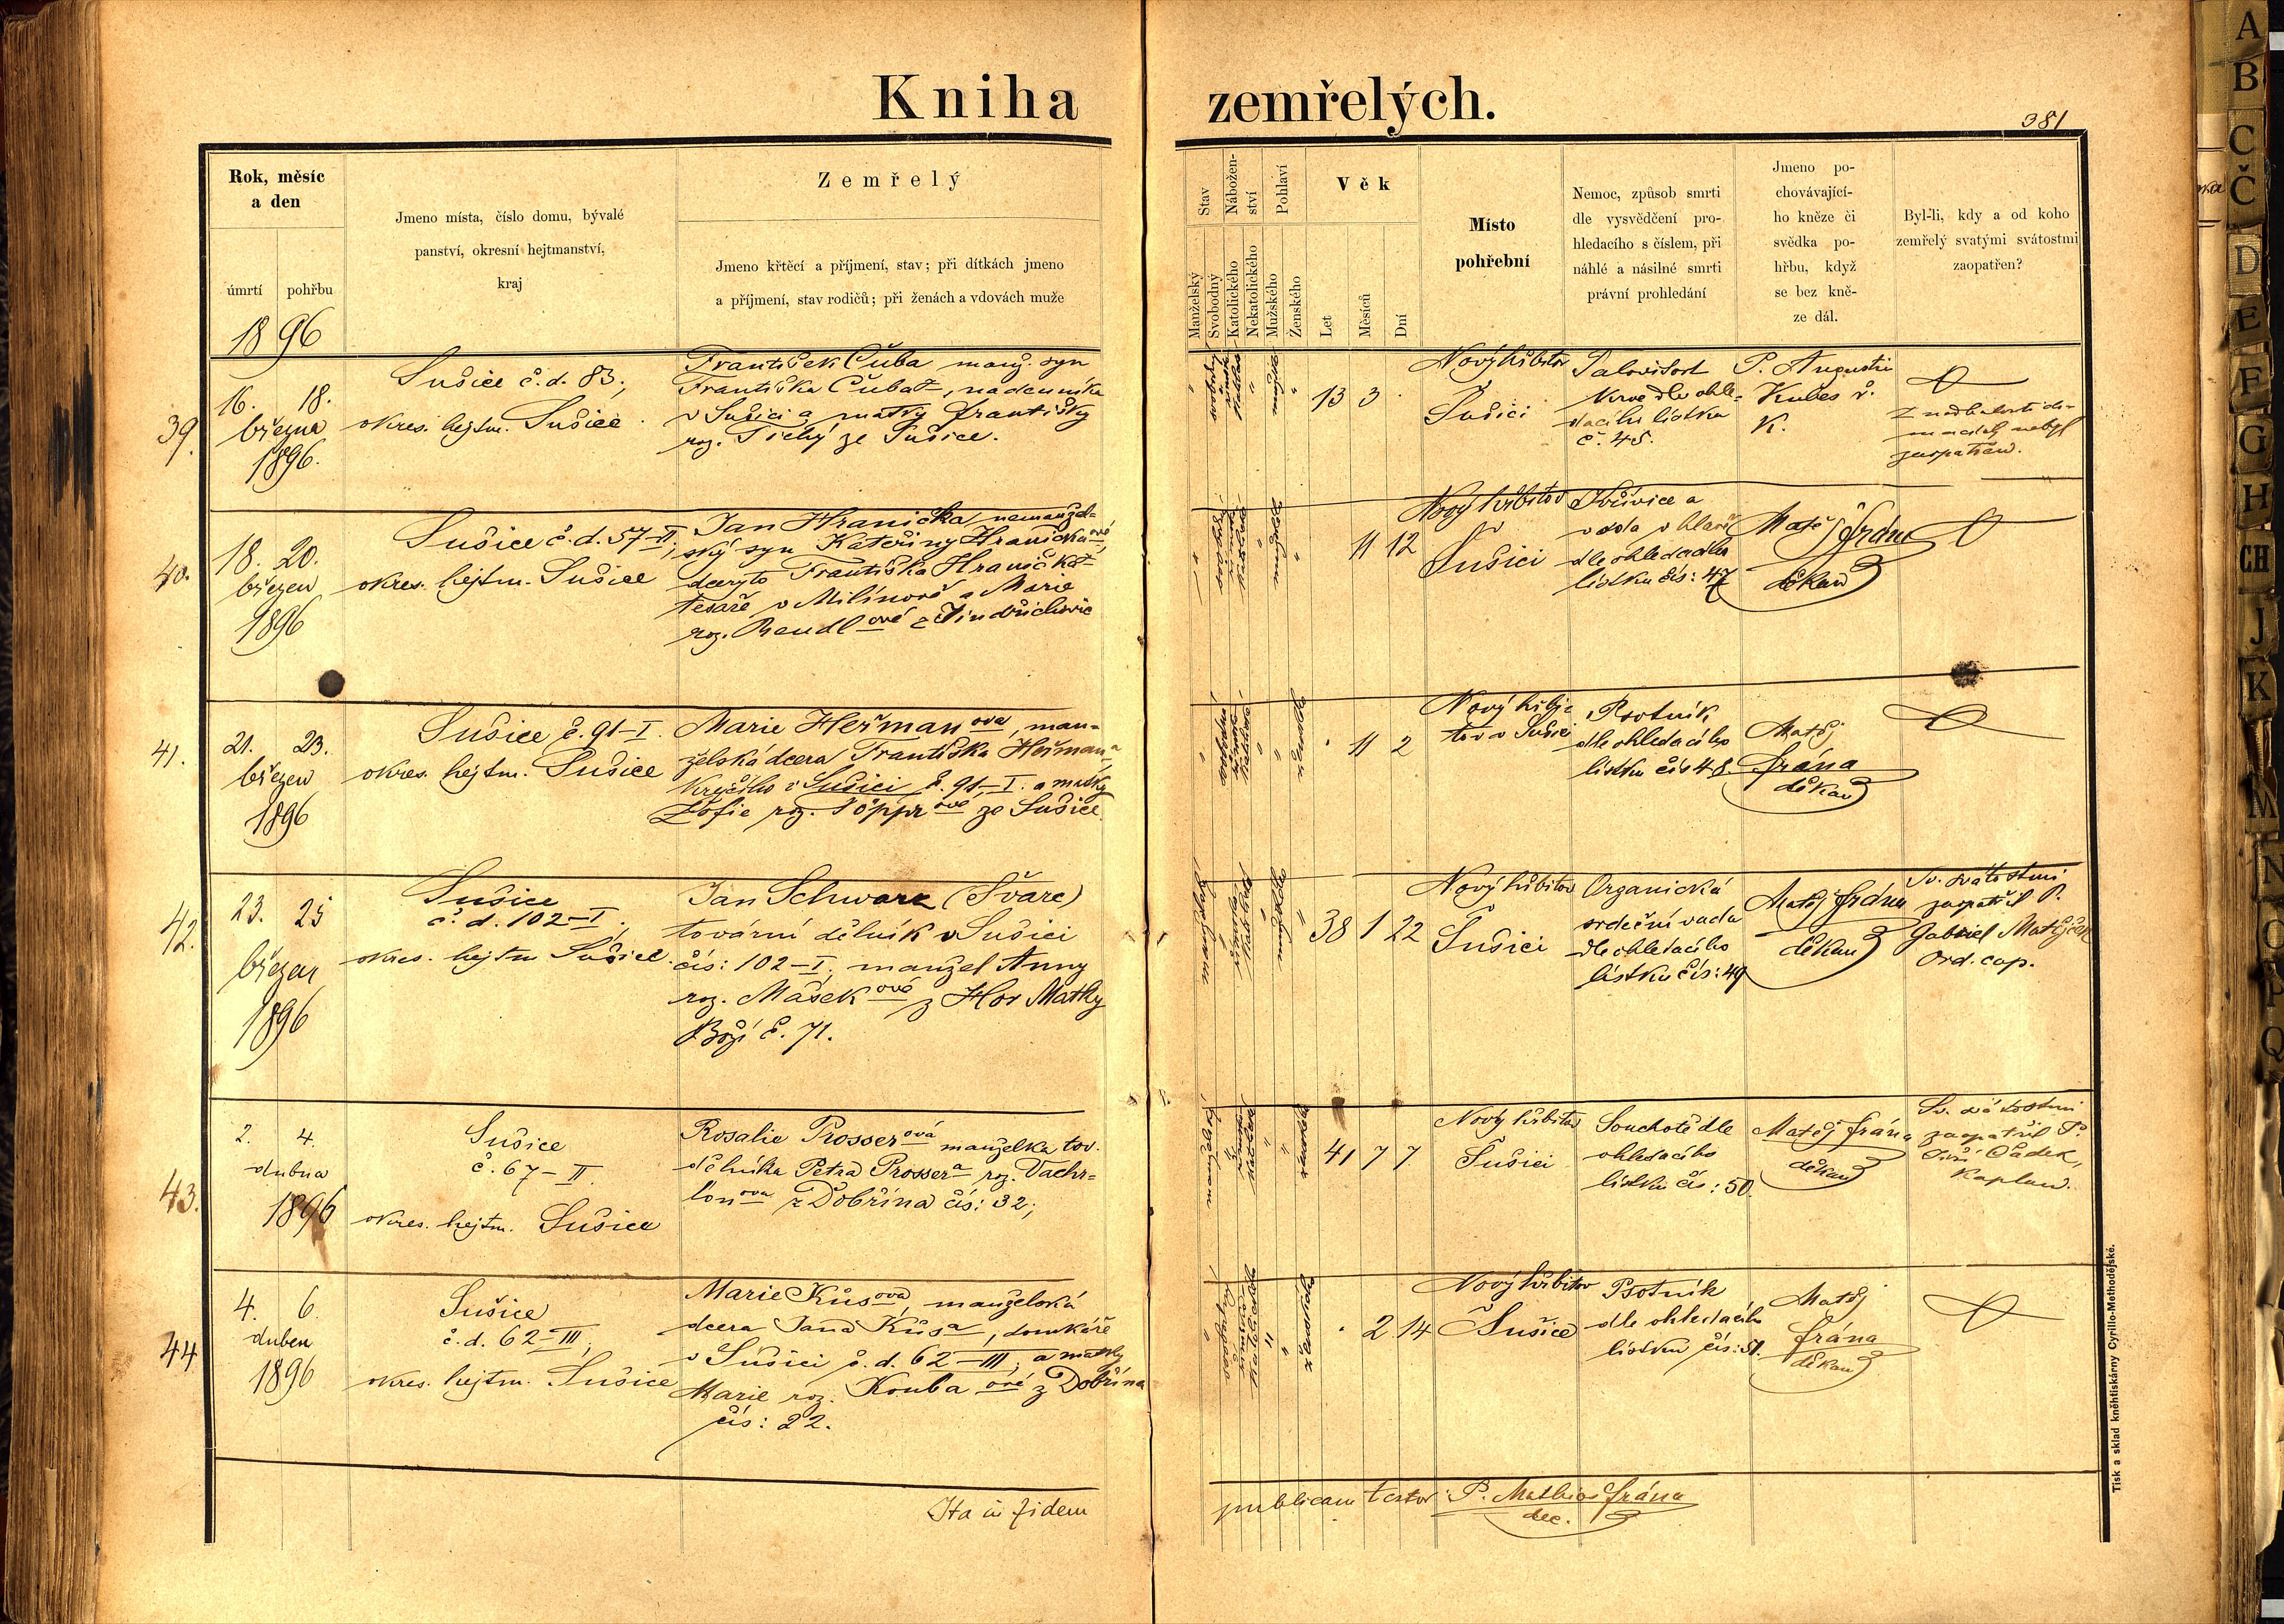 Kniha zemřelých.
381
Rok, měsíc
a den
úmrtí
pohřbu
1896
Jmeno místa, číslo domu, bývalé
panství, okresní hejtmanství,
kraj
Zemřelý
Jmeno křtěcí a příjmení, stav; při dítkách jmeno
a příjmení, stav rodičů; při ženách a vdovách muže
Stav
Manželský
Svobodný
Nábožen-
ství
Katolického
Nekatolického
Pohlaví
Mužského
Ženského
Věk
Let
Měsíců
Dní
Místo
pohřební
Nemoc, způsob smrti
dle vysvědčení pro-
hledacího s číslem, při
náhlé a násilné smrti
právní prohledání
Jmeno po-
chovávající-
ho kněze či
svědka po-
hřbu, když
se bez kně-
ze dál.
Byl-li, kdy a od koho
zemřelý svatými svátostmi
zaopatřen?
39.
16. 18.
března
1896.
Sušice č. d. 83;
okres. hejtm. Sušice
František Čuba manž. syn
Františka Čuba, nádenníka
v Sušici a matky Františky
roz. Tichý ze Sušice.
13 3
Nový hřbitov
Sušici
krve dle ohle-
dacího lístku
č. 45.
P. Augustin
Kubeš
K.
nebyl
zaopatřen.
40.
18. 20.
březen
1896
Sušice č. d. 57-II;
okres. hejtm. Sušice
Jan Hranička, nemanžel-
ský syn Kateřiny Hraničkové,
dcery to Františka Hranička
tesaře v Milínově a Marie
roz. Rendlové z Jindřichovic
11 12
Nový hřbitov
Sušici
a
voda v hlavě
dle ohledacího
lístku čís: 47
Matěj Frána
děkan
41.
21. 23.
březen
1896
Sušice č. 91-I.
okres. hejtm. Sušice
Marie Heřmanova, man-
želská dcera Františka Heřmana,
krejčího v Sušici č. 91-I. a matky
Žofie roz. ové ze Sušice
11 2
Nový hřbi-
tov v Sušici
Psotník
dle ohledacího
lístku čís 48.
Matěj
Frána
děkan
42.
23. 25
březen
1896
Sušice
č. d. 102-I;
okres. hejtm Sušice.
Jan Schwarz (Švarc)
tovární dělník v Sušici
čís: 102-I; manžel Anny
roz. Maškové z Hor Matky
Boží č. 71.
38 1 22
Nový hřbitov
Sušici
Organická
srdeční vada
dle ohledacího
lístku čís: 49
Matěj Frána
děkan
Sv. svátostmi
zaopatřil P.
Gabriel Matějček
Ord. cap.
43.
2. 4.
dubna
1896
Sušice
č. 67-II.
okres. hejtm. Sušice
Rosalie Prosserová manželka tov.
dělníka Petra Prossera roz. Vachr-
lonova z Dobřína čís: 32;
41 7 7
Nový hřbitov
Sušici
Souchotě dle
ohledacího
lístku čís: 50.
Matěj Frána
děkan
Sv. svátostmi
zaopatřil P.
Jiří Čadek,
Kaplan.
44
4. 6.
duben
1896
Sušice
č. d. 62-III;
okres. hejtm. Sušice
Marie Kůsova, manželská
dcera Jana Kůsa, domkáře
v Sušici č. d. 62-III; a matky
Marie roz. Koubaové z Dobřína
čís: 22.
2 14
Nový hřbitov
Sušice
Psotník
dle ohledacího
lístku čís: 51.
Matěj
Frána
děkan
Ita in fidem
publicam testor: P. Mathias Frána
dec.
Tisk a sklad kněhtiskárny Cyrillo-Methodějské.
A
B
C
Č
D
E
F
G
H
CH
J
K
M
N
O
P
Q